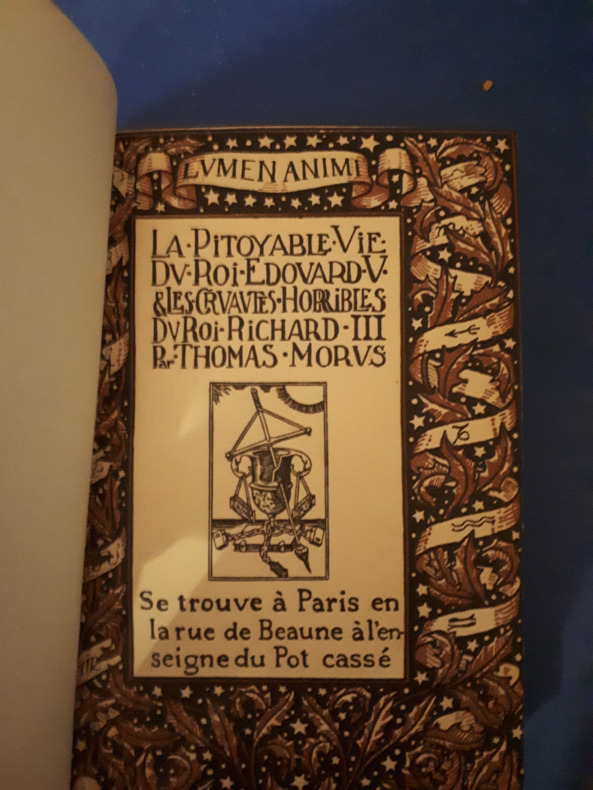 LVMEN ANIMI
LA·PITOYABLE·VIE·
DV·ROI·EDOVARD·V·
&LES·CRVAVTES·HORRIBLES
DV ROI·RICHARD·III
Par·THOMAS·MORVS
Se trouve à Paris en
la rue de Beaune à l'en-
seigne du Pot cassé